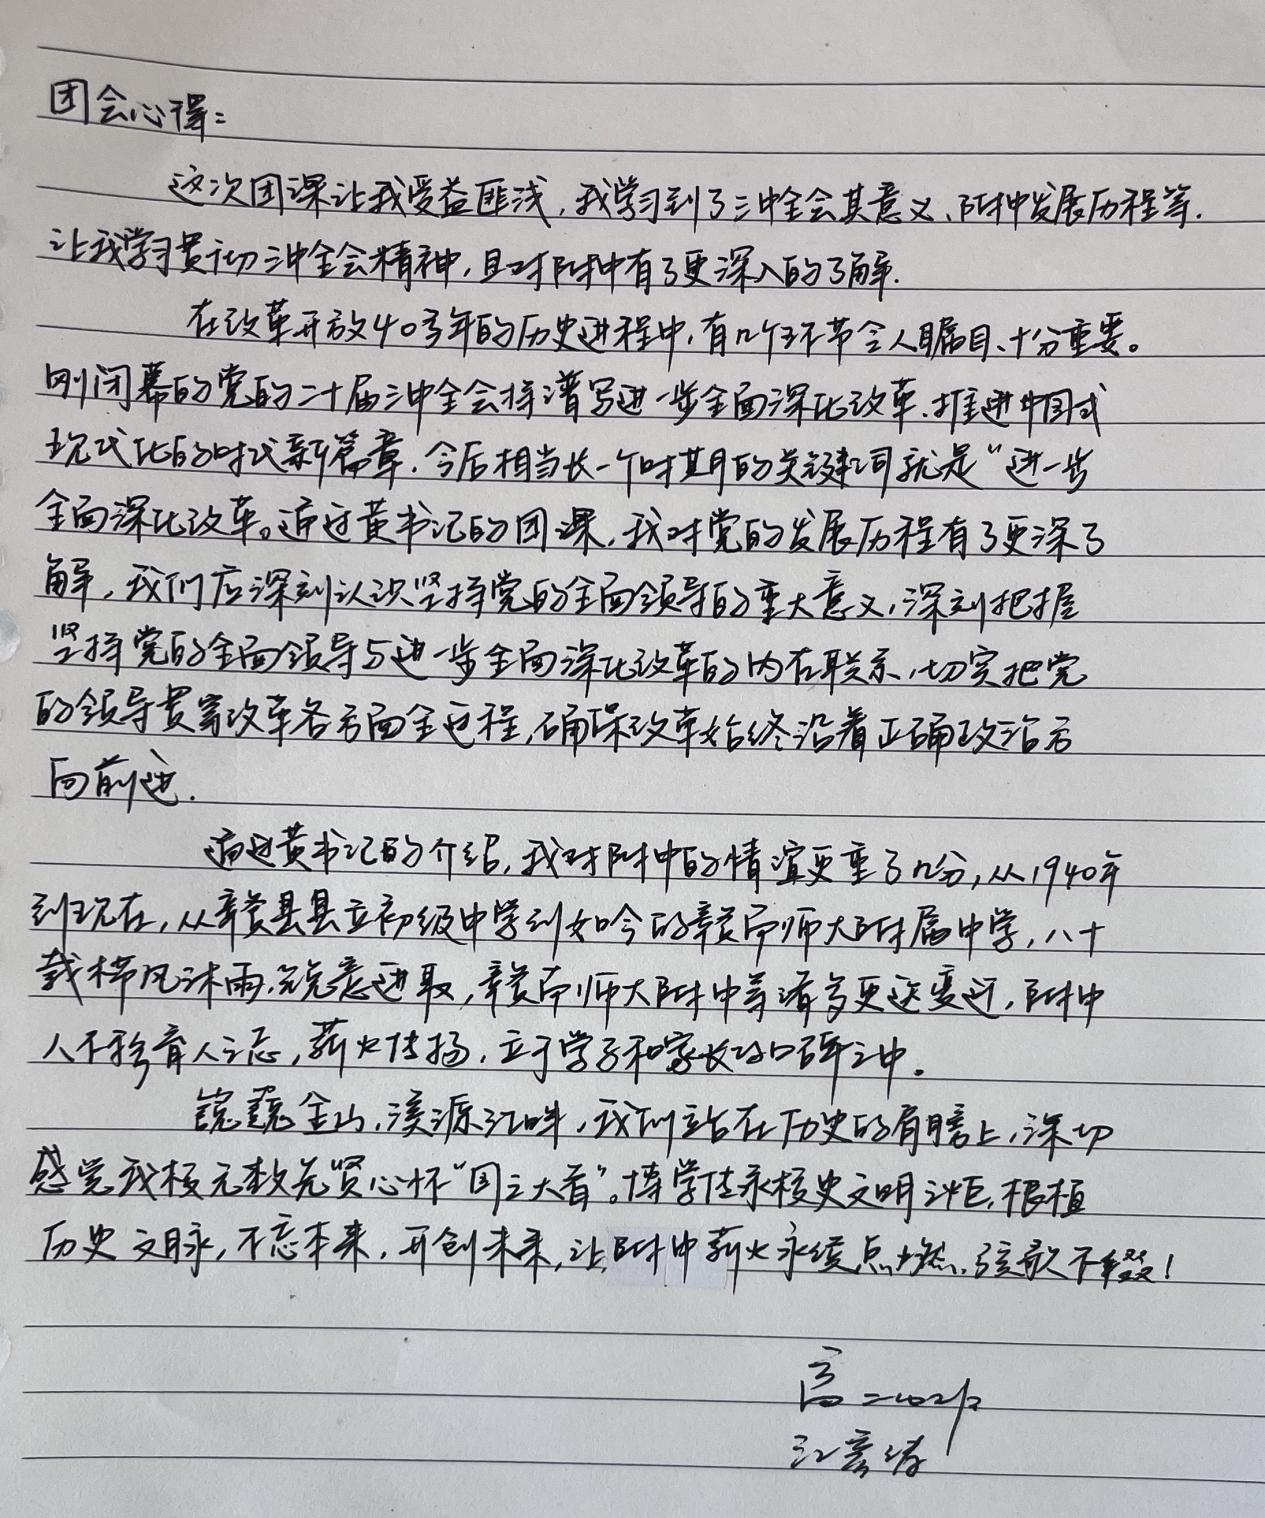 团会心得：
这次团课让我受益匪浅，我学习到了三中全会其意义、附中发展历程等.
让我学习贯彻三中全会精神，且对附中有了更深入的了解.
在改革开放40多年的历史进程中，有几个环节令人瞩目、十分重要。
刚闭幕的党的二十届三中全会将谱写进一步全面深化改革、推进中国式
现代化的时代新篇章，今后相当长一个时期的关键词就是“进一步
全面深化改革。通过黄书记的团课，我对党的发展历程有了更深了
解，我们应深刻认识坚持党的全面领导的重大意义，深刻把握
坚持党的全面领导与进一步全面深化改革的内在联系，切实把党
的领导贯穿改革各方面全过程，确保改革始终沿着正确政治方
向前进.
通过黄书记的介绍，我对附中的情谊更重了几分，从1940年
到现在，从赣县县立初级中学到如今的赣南师大附属中学，八十
载栉风沐雨，锐意进取，赣南师大附中等诸多更迭变迁，附中
人不移育人之志，薪火传扬，立于学子和家长的口碑之中。
巍巍金山，溪源江畔，我们站在历史的肩膀上，深切
感觉我校无数先贤心怀“国之大者”。博学传承校史文明之炬，根植
历史文脉，不忘本来，开创未来，让附中薪火永续点燃，弦歌不辍！
高二
江